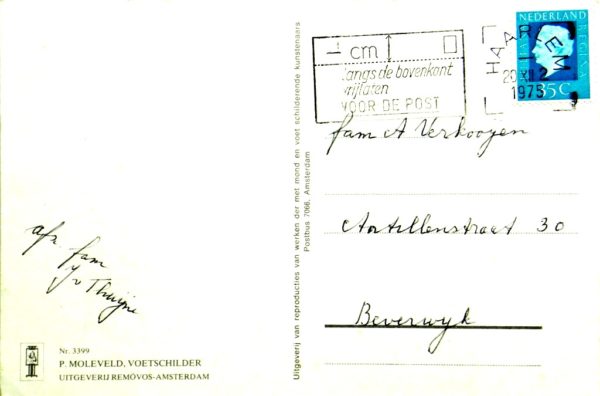 afz. fam
Nr. 3399
P. MOLEVELD, VOETSCHILDER
UITGEVERIJ REMÓVOS-AMSTERDAM
Uitgeverij van reproducties van werken der met mond en voet schilderende kunstenaars
Postbus 7066, Amsterdam
1 cm
langs de bovenkant
vrijlaten
VOOR DE POST
HAARLEM
1975
NEDERLAND
35 C
fam A Verkooijen
Antillenstraat 30
Beverwijk